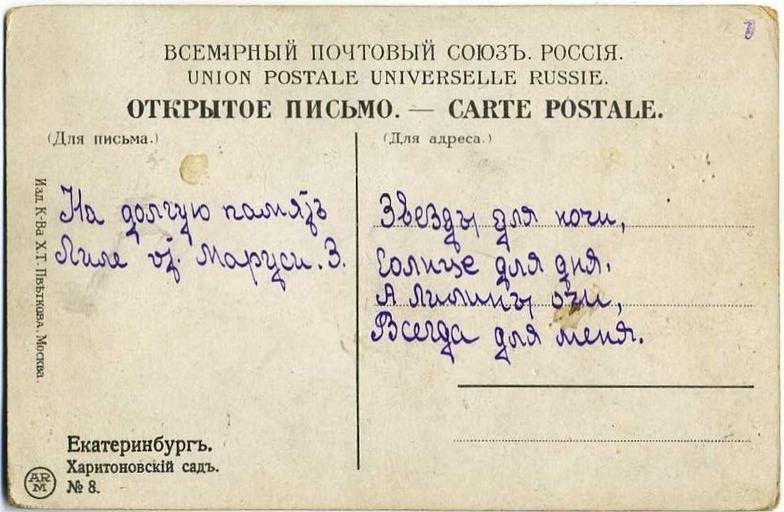 ВСЕМІРНЫЙ ПОЧТОВЫЙ СОЮЗЪ. РОССІЯ.
UNION POSTALE UNIVERSELLE RUSSIE.
ОТКРЫТОЕ ПИСЬМО. — CARTE POSTALE.
(Для письма.)
(Для адреса.)
На долгую память
Лиле от. Маруси. З.
Звезды для ночи,
Солнце для дня.
А Лилины очи,
Всегда для меня.
Изд. К-ва Х.Т. Цвѣткова. Москва.
Екатеринбургъ.
Харитоновскій садъ.
№ 8.
ARM